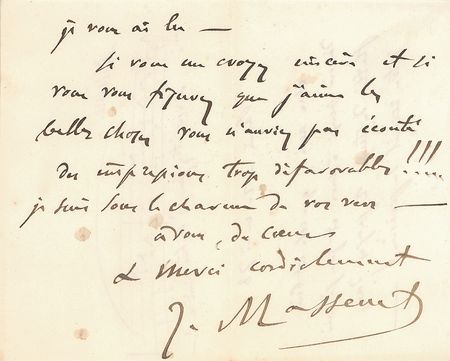 je vous ai lu —
si vous me croyez sincère et si
vous vous figurez que j'aime les
belles choses vous n'auriez pas écouté
des impressions trop défavorables !!!...
je suis sous le charme de vos vers —
à vous, de cœur
& merci cordialement
J. Massenet